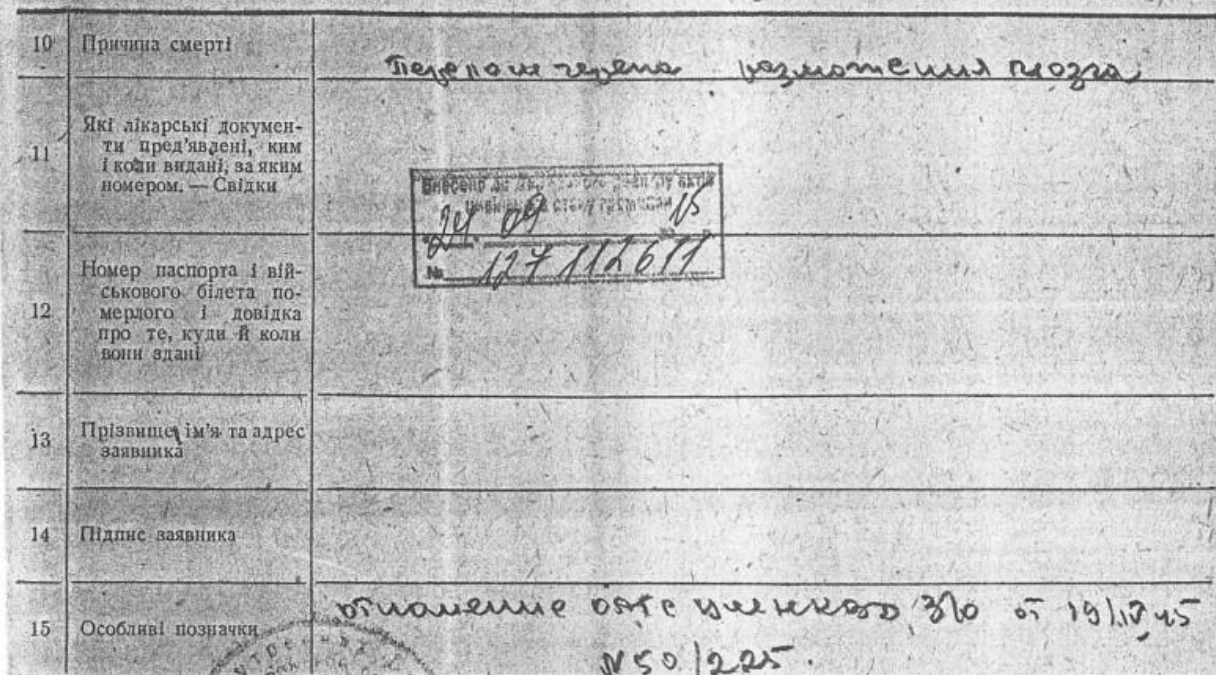 10 Причина смерті
Перелом черепа разможения мозга
11 Які лікарські документи пред'явлені, ким
і коли видані, за яким
номером. — Свідки
Внесено до Державного
"24" 09 15
№ 127 112 611
12 Номер паспорта і військового білета померлого і довідка
про те, куди й коли
вони здані
13 Прізвище, ім'я та адрес
заявника
14 Підпис заявника
15 Особливі позначки
отношение от 19/IV 45
N 50/225.